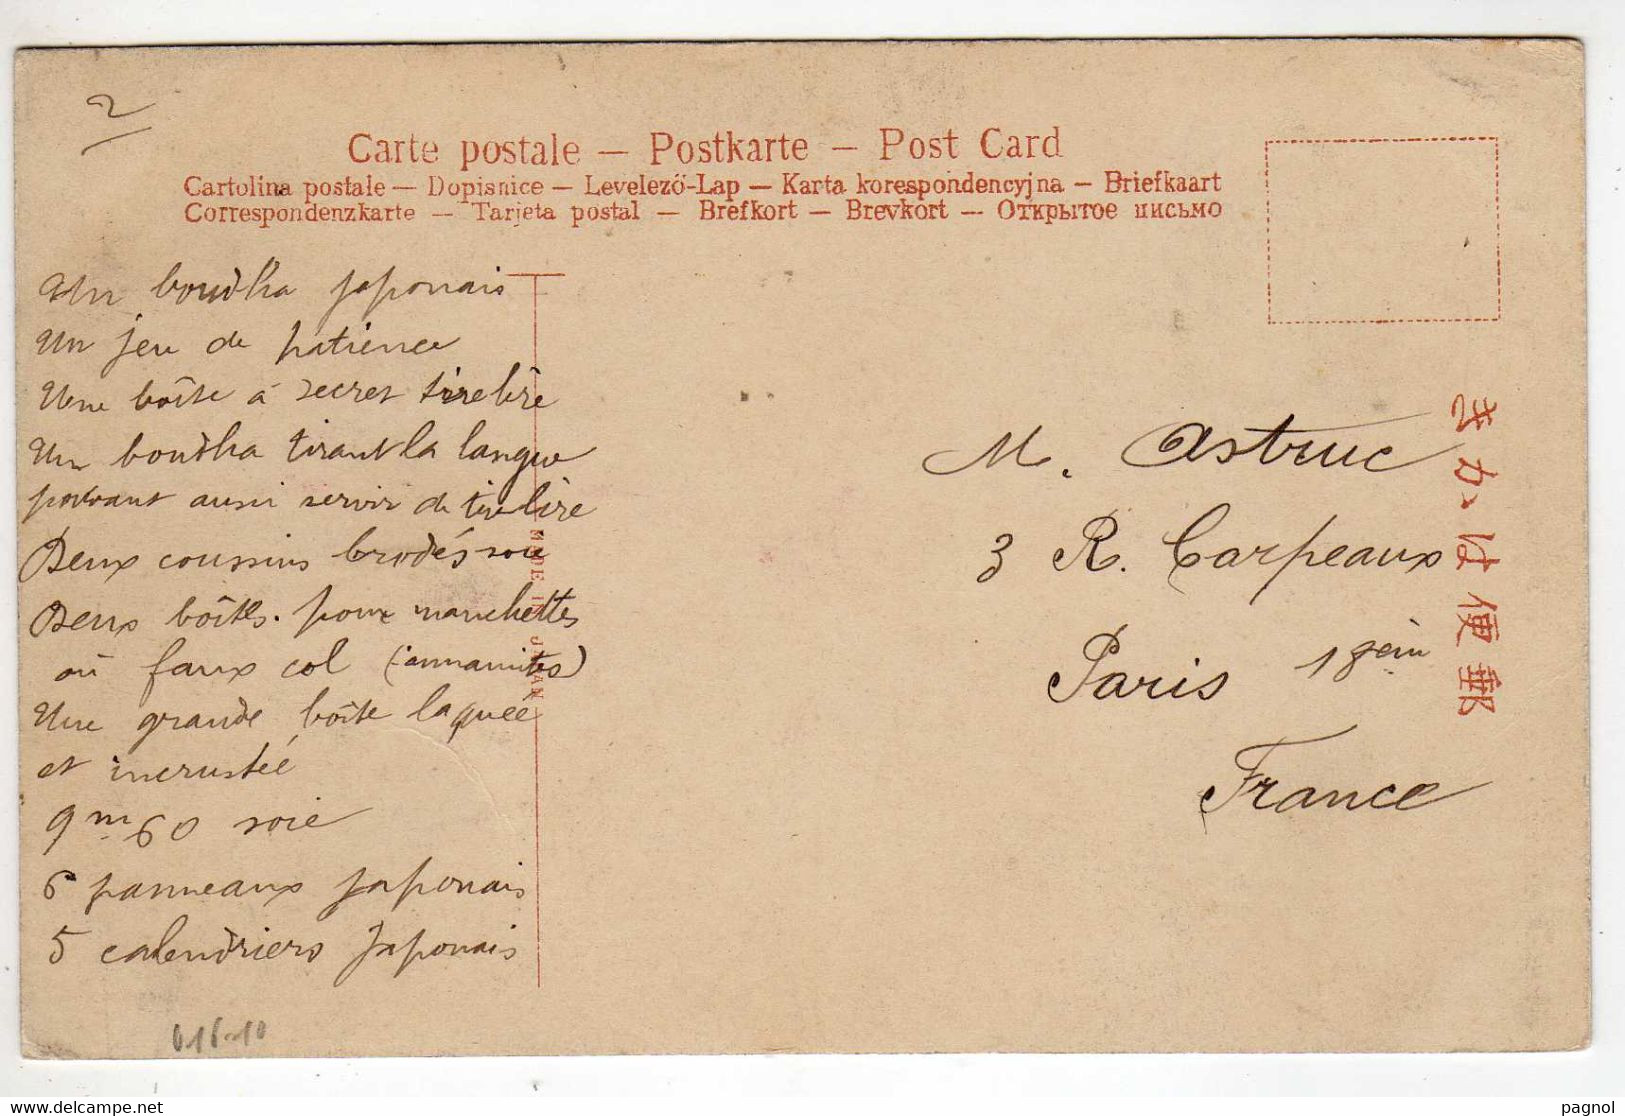 2
Carte postale — Postkarte — Post Card
Cartolina postale — Dopisnice — Levelező-Lap — Karta korespondencyjna — Briefkaart
Correspondenzkarte — Tarjeta postal — Brefkort — Brevkort — Открытое письмо
Un boudha japonais
Un jeu de patience
Une boîte à secret tirelire
Un boudha tirant la langue
pouvant aussi servir de tirelire
Deux coussins brodés soie
Deux boîtes. pour manchettes
ou faux col (annamites)
Une grande boîte laquée
et incrustée
9m 60 soie
6 panneaux japonais
5 calendriers japonais
MADE IN JAPAN
M. Astruc
3 R. Carpeaux
Paris 18eme
France
きかは便郵
pagnol